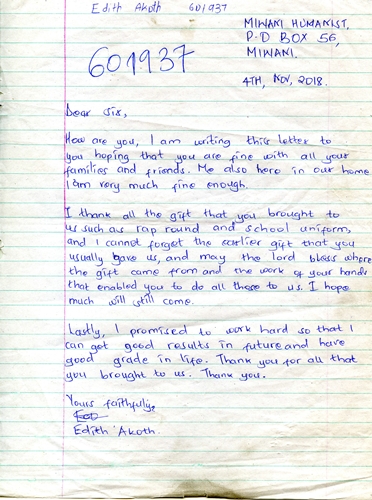 Edith Akoth 601937
601937
MIWANI HUMANIST,
P.O BOX 56,
MIWANI.
4TH, NOV, 2018.
Dear Sir,
How are you, I am writing this letter to
you hoping that you are fine with all your
families and friends. Me also here in our home
I am very much fine enough.
I thank all the gift that you brought to
us such as rap round and school uniform,
and I cannot forget the earlier gift that you
usually gave us, and may the lord bless where
the gift came from and the work of your hands
that enabled you to do all these to us. I hope
much will still come.
Lastly, I promised to work hard so that I
can get good results in future and have
good grade in life. Thank you for all that
you brought to us. Thank you.
Yours faithfully,
Edith Akoth.